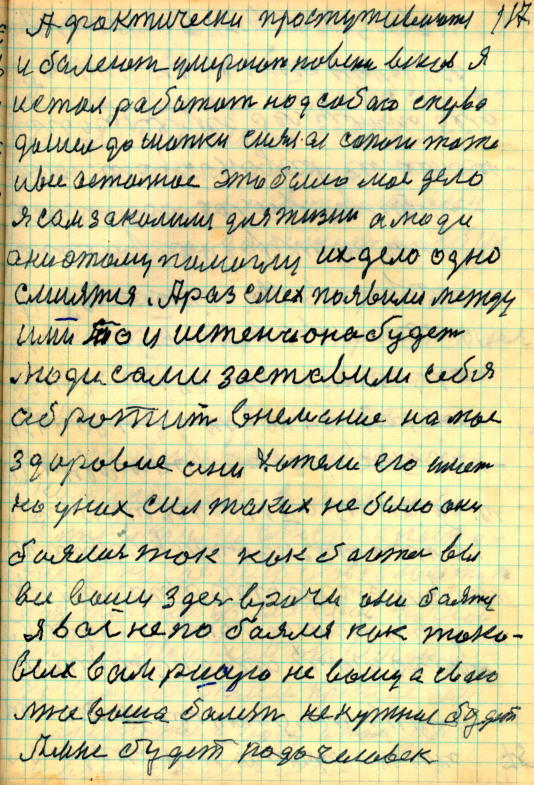 А фрактически простуживаются 117
и балеют умирают повсем веков Я
истал работат надсобаю снува
дашел до шапки снял а сапоги тоже
и вне астолное это было мое дело
я сам заколили для жизни а люди
ани этому памогли их дело одно
смиятся. А раз смех появили между
ими то и истенна она будет
люди сами заставили себя
абротит внемание на мое
здоровие ани хотели его имет
но у них сил таких не было они
боялис так как баитеся вы
ваши здес врочи они баятся
я вас не по баялся как тако-
вых вам рисую не вашу а сваю
лживаша балезн не нужная будет
Мине будет нада человек